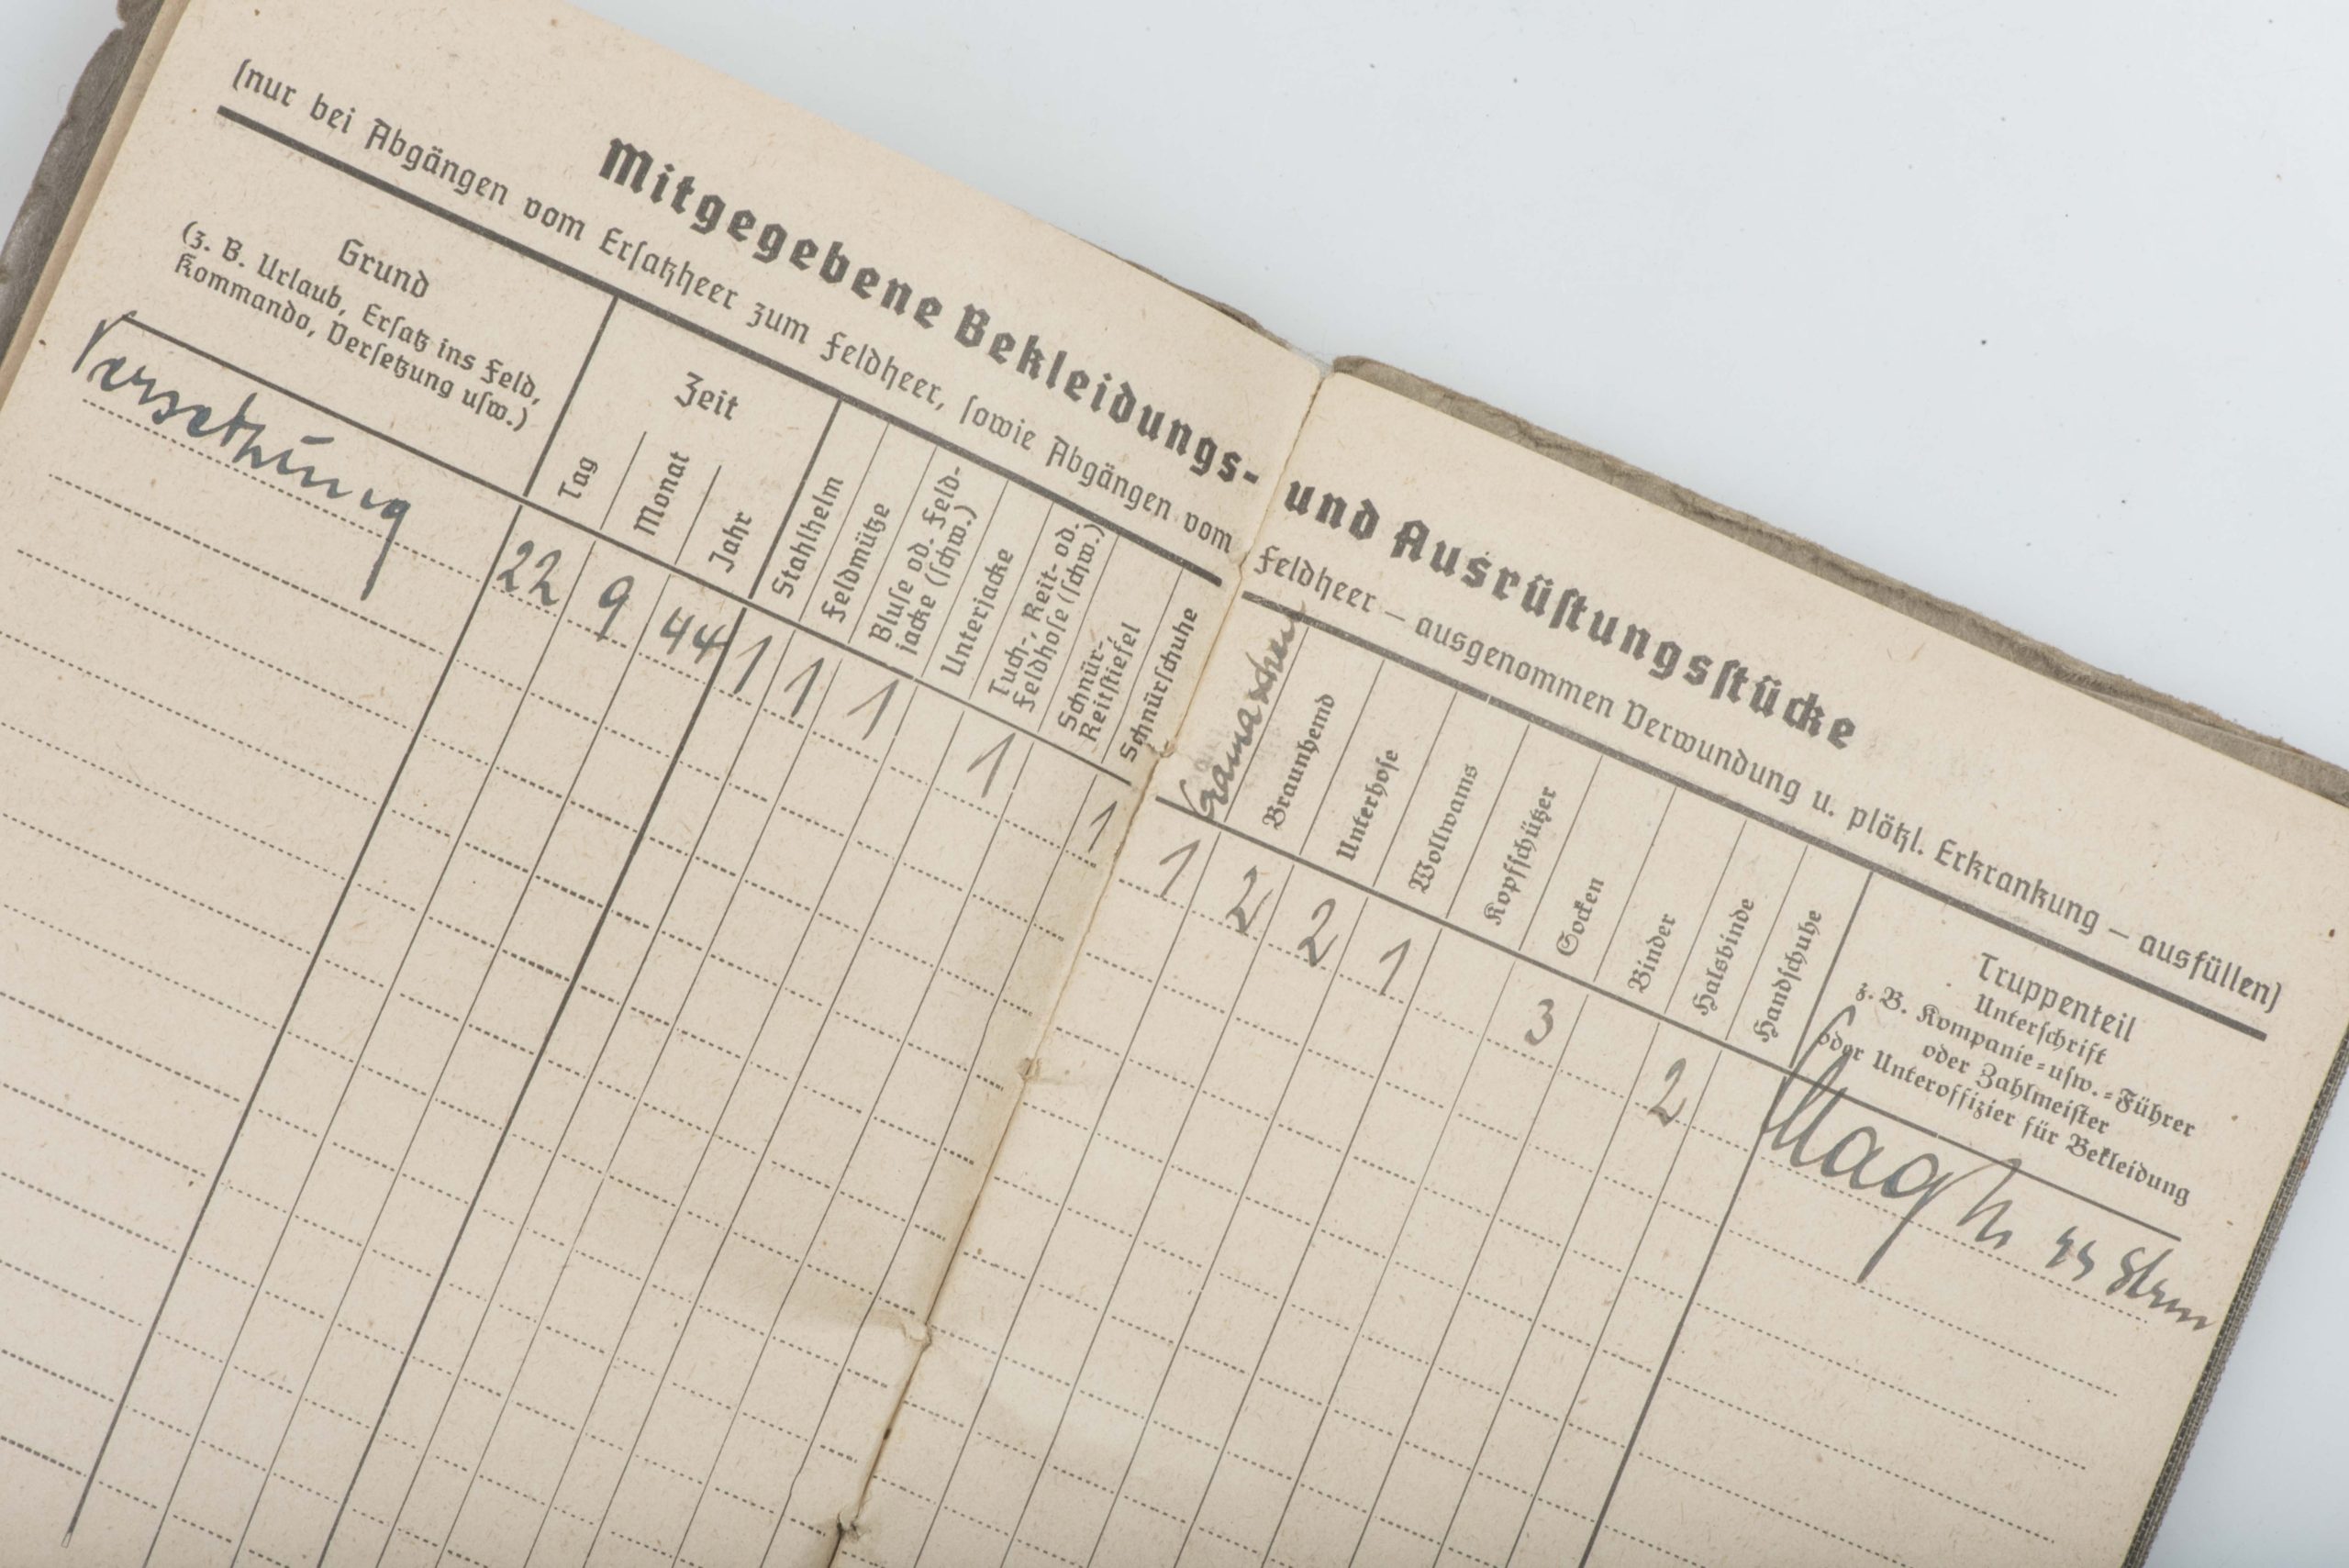 Mitgegebene Bekleidungs- und Ausrüstungsstücke
(nur bei Abgängen vom Ersatzheer zum Feldheer, sowie Abgängen vom Feldheer – ausgenommen Verwundung u. plötzl. Erkrankung – ausfüllen)
Grund
(z. B. Urlaub, Ersatz ins Feld,
Kommando, Versetzung usw.)
Zeit
Tag
Monat
Jahr
Stahlhelm
Feldmütze
Bluse od. Feld-
jacke (schw.)
Unterjacke
Tuch-, Reit- od.
Feldhose (schw.)
Schnür-,
Reitstiefel
Schnürschuhe
Gamaschen
Braunhemd
Unterhose
Wollwams
Kopfschützer
Socken
Binder
Halsbinde
Handschuhe
Truppenteil
Unterschrift
z. B. Kompanie-usw.-Führer
oder Zahlmeister
oder Unteroffizier für Bekleidung
Versetzung 22 9 44 1 1 1 1 1 1 2 2 1 3 2